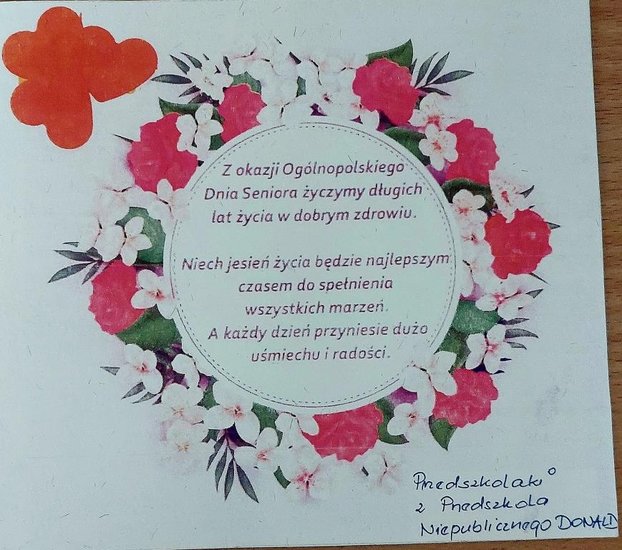 Z okazji Ogólnopolskiego
Dnia Seniora życzymy długich
lat życia w dobrym zdrowiu.
Niech jesień życia będzie najlepszym
czasem do spełnienia
wszystkich marzeń.
A każdy dzień przyniesie dużo
uśmiechu i radości.
Przedszkolaki
z Przedszkola
Niepublicznego DONALD